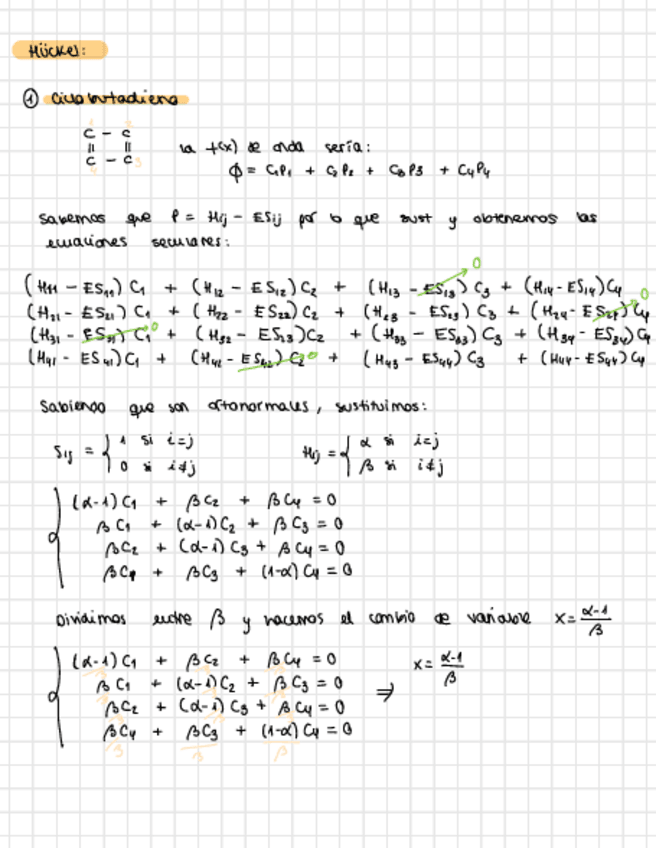 Hückel:
① Ciclobutadieno
C - C
|| ||
C - C 3
la f(x) de onda sería:
ϕ = C1P1 + C2P2 + C3P3 + C4P4
Sabemos que P = Hij - ESij por lo que sust y obtenemos las
ecuaciones seculares:
(H11 - ES11) C1 + (H12 - ES12) C2 + (H13 - ES13) C3 + (H14 - ES14) C4
(H21 - ES21) C1 + (H22 - ES22) C2 + (H23 - ES23) C3 + (H24 - ES24) C4
(H31 - ES31) C1 + (H32 - ES13) C2 + (H33 - ES33) C3 + (H34 - ES34) C4
(H41 - ES41) C1 + (H42 - ES42) C2 + (H43 - ES44) C3 + (H44 - ES44) C4
0 0 0 0
Sabiendo que son ortonormales, sustituimos:
Sij = { 1 si i=j Hij = { α si i=j
0 si i≠j β si i≠j
(α-1) C1 + βC2 + βC4 = 0
βC1 + (α-1) C2 + βC3 = 0
βC2 + (α-1) C3 + βC4 = 0
βC4 + βC3 + (1-α) C4 = 0
Dividimos entre β y hacemos el cambio de variable x = α-1/β
(α-1) C1 + βC2 + βC4 = 0
βC1 + (α-1) C2 + βC3 = 0
βC2 + (α-1) C3 + βC4 = 0
βC4 + βC3 + (1-α) C4 = 0
β β β
⇒ x = α-1/β